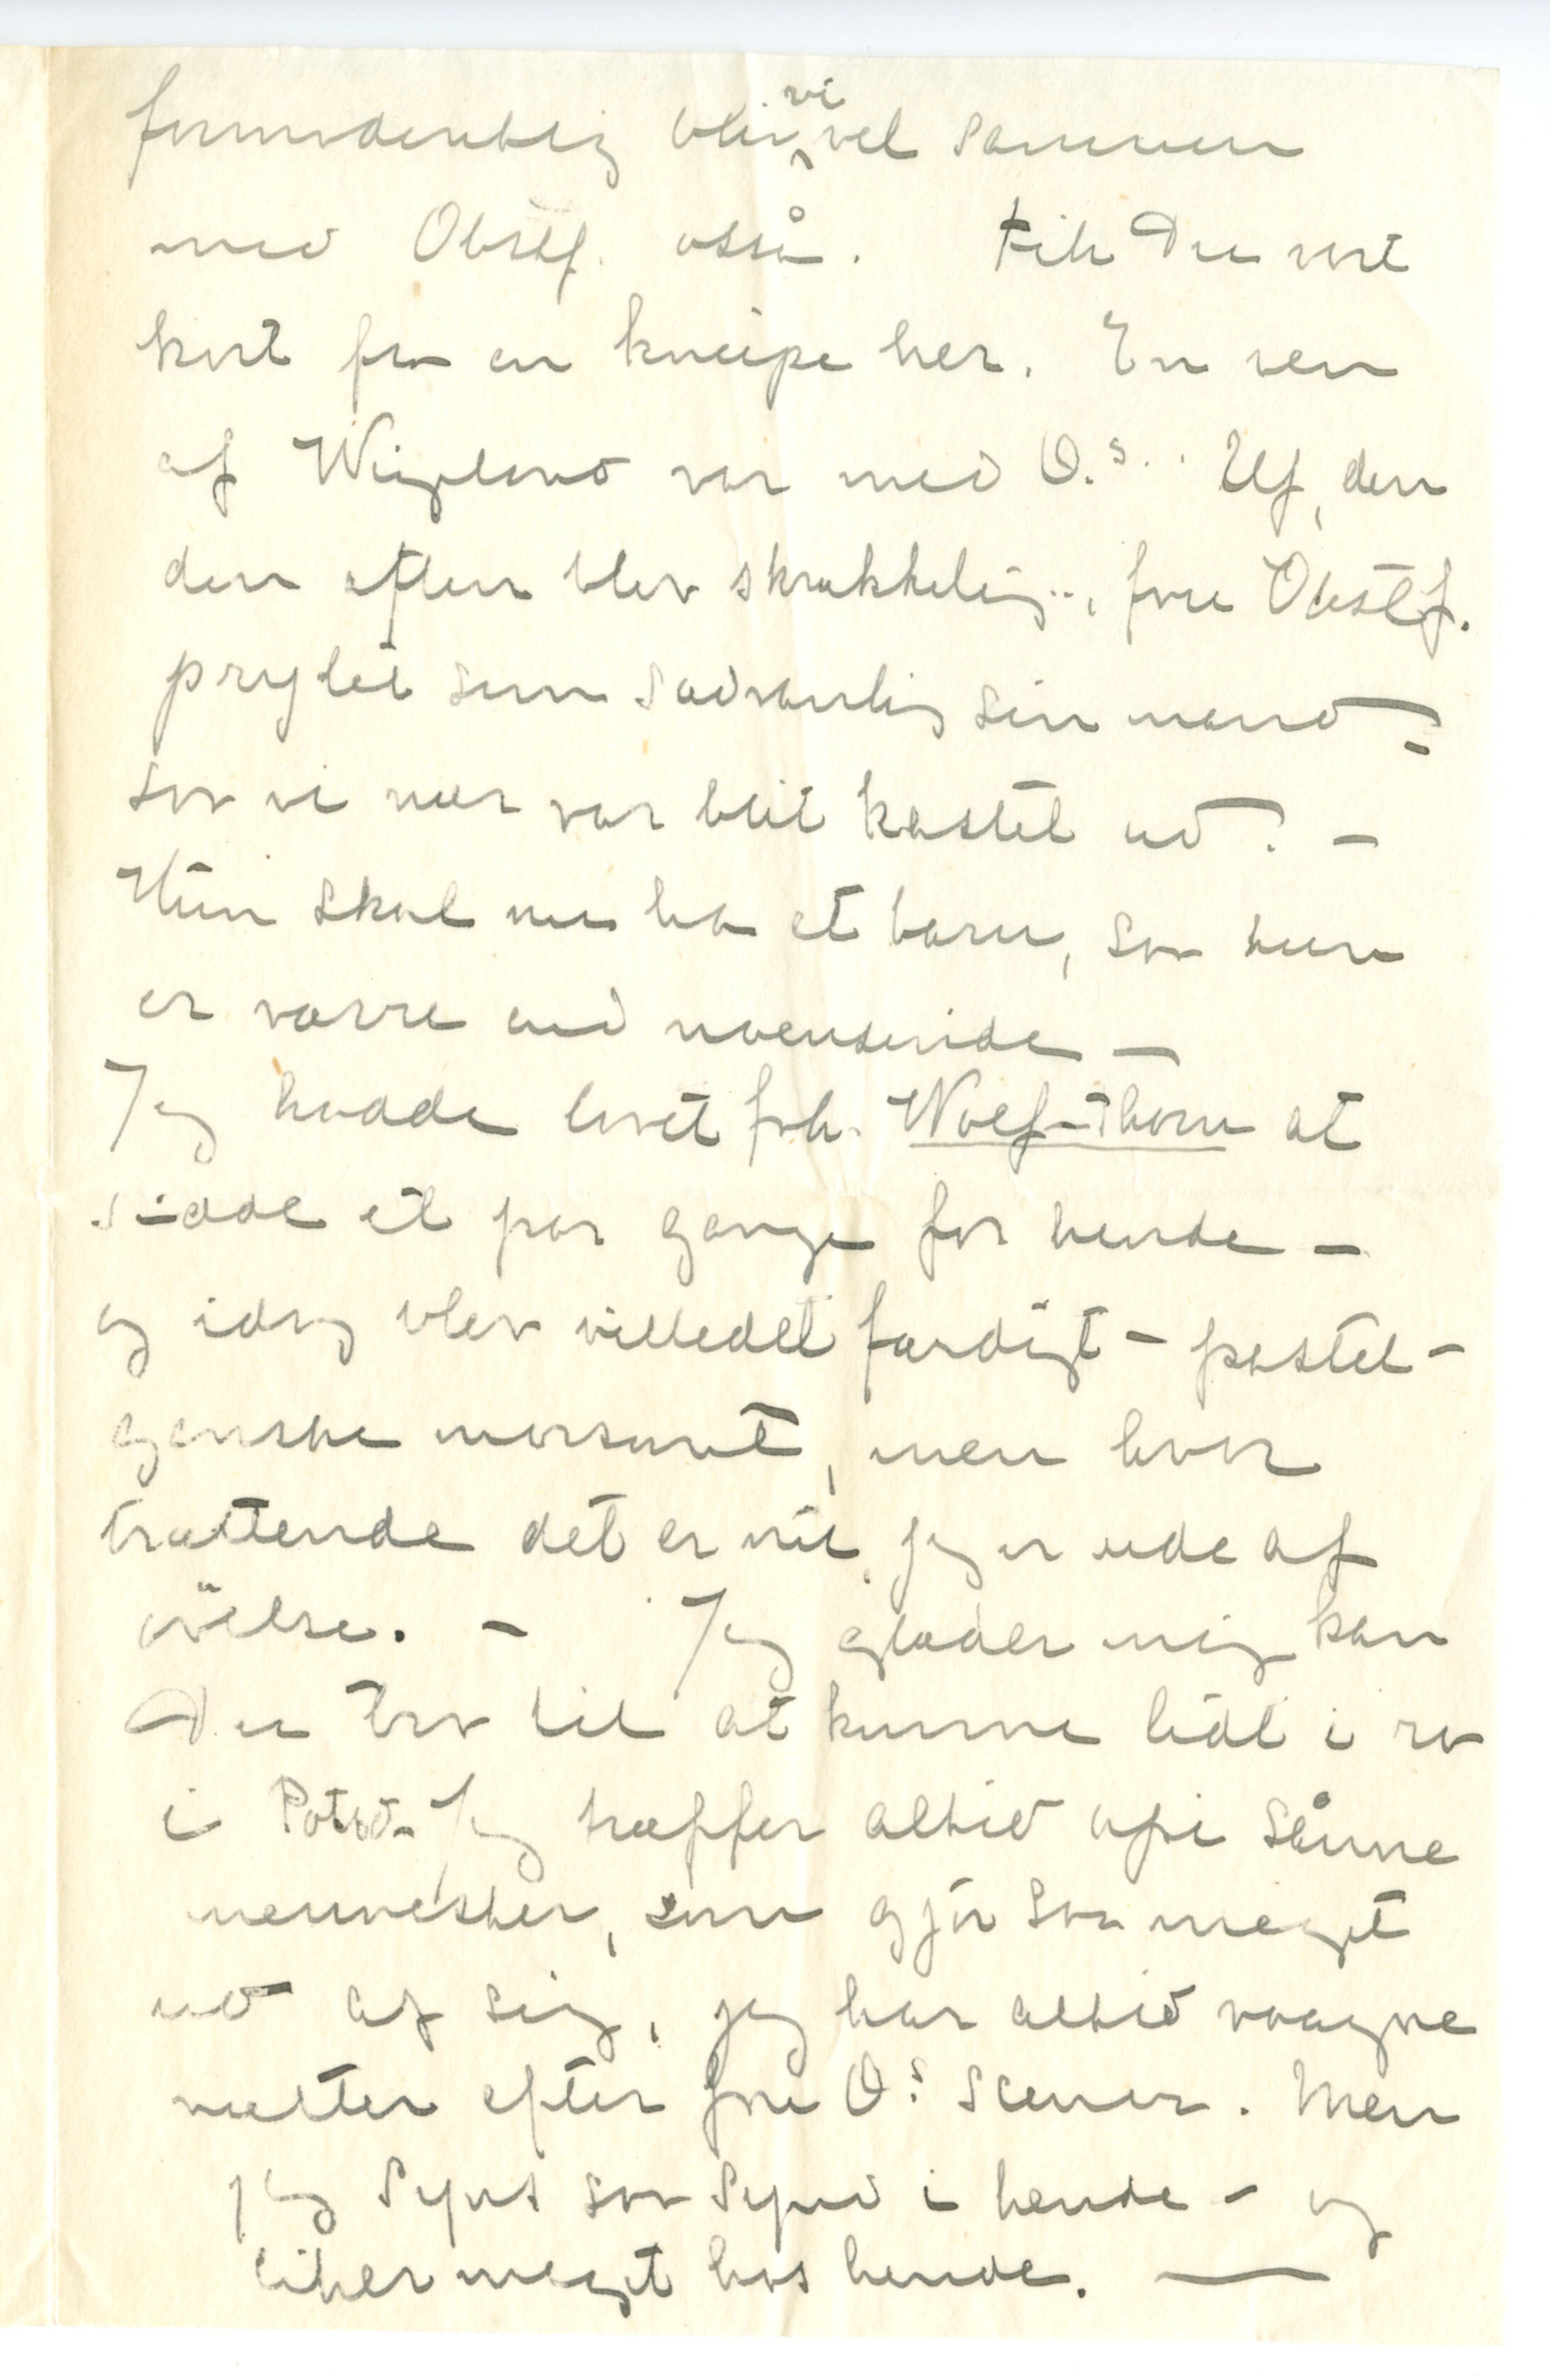 formodentlig blir vi vel sammen
med Obstf. osså. Fik Du vort
kort fra en kneipe her. En ven
af Wigeland var med O.s.. Uf, den
den aften blev skrækkelig.., frue Obstf.
prylet som sædvanlig sin mand –
saa vi nær var blit kastet ud! –
Hun skal nu ha et barn, saa hun
er værre end noensinde –
Jeg havde lovet frk. Wolf-Thorn at
sidde et par gange for hende –
og idag blev billedet færdigt – pastel –
ganske morsomt, men hvor
trættende det er nu, jeg er ude af
övelse. – Jeg glæder mig kan
Du tro til at kunne lidt i ro
i Potsd. Jeg træffer altid opi sånne
mennesker, som gjör saa meget
ud af sig, jeg har altid vaagne
nætter efter frue O.s scener. Men
jeg synes saa synd i hende – og
liker meget hos hende. —